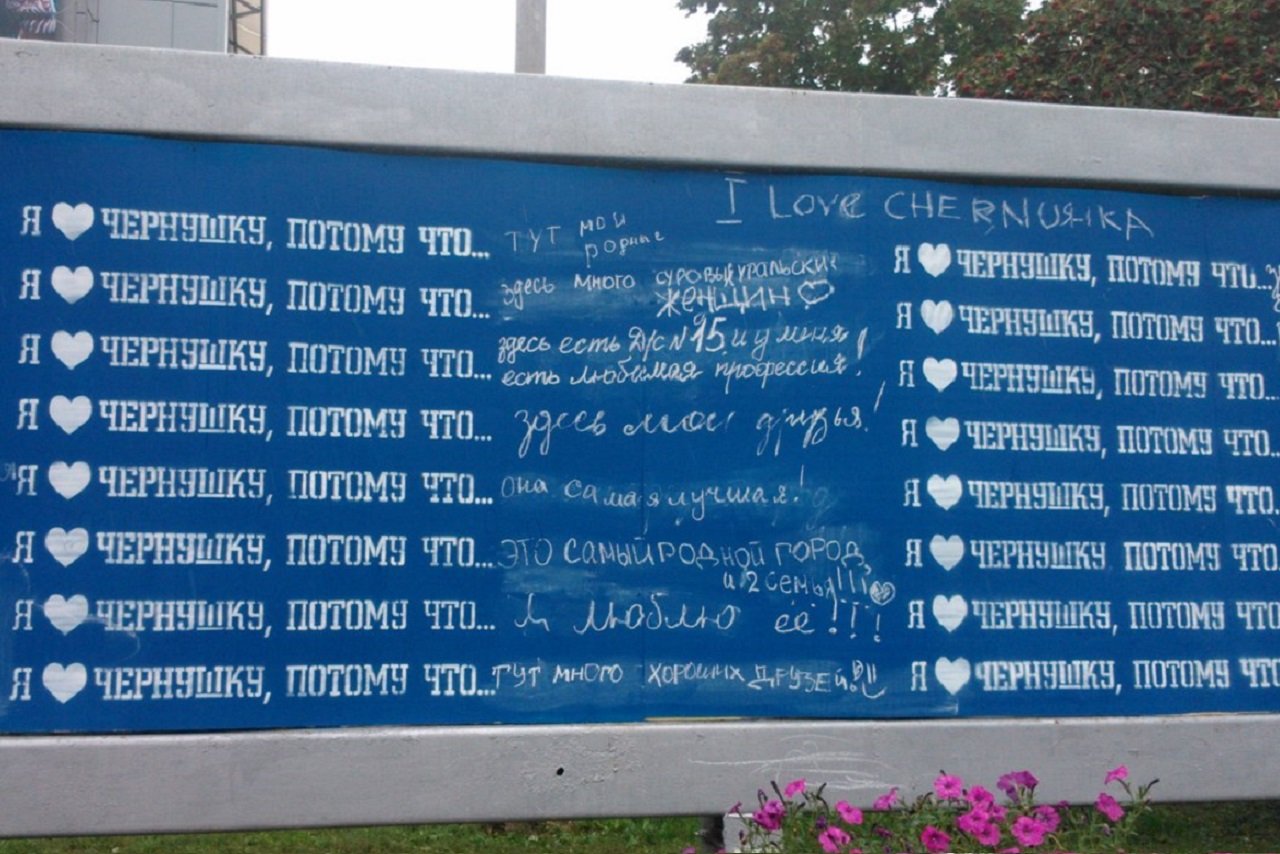 I Love CHERNUSHKA
Я ♥ ЧЕРНУШКУ, ПОТОМУ ЧТО... ТУТ МОИ
родные
Я ♥ ЧЕРНУШКУ, ПОТОМУ ЧТО... здесь много суровых уральских
ЖЕНЩИН ♡
Я ♥ ЧЕРНУШКУ, ПОТОМУ ЧТО... здесь есть Д/с №15, и у меня
есть любимая профессия!
Я ♥ ЧЕРНУШКУ, ПОТОМУ ЧТО... здесь мои друзья!
Я ♥ ЧЕРНУШКУ, ПОТОМУ ЧТО... она самая лучшая!
Я ♥ ЧЕРНУШКУ, ПОТОМУ ЧТО... ЭТО САМЫЙ РОДНОЙ ГОРОД,
и 2 семья!!! ♡
Я ♥ ЧЕРНУШКУ, ПОТОМУ ЧТО... Я люблю её!!!
Я ♥ ЧЕРНУШКУ, ПОТОМУ ЧТО... ТУТ МНОГО ХОРОШИХ ДРУЗЕЙ!!!
Я ♥ ЧЕРНУШКУ, ПОТОМУ ЧТО...
Я ♥ ЧЕРНУШКУ, ПОТОМУ ЧТО...
Я ♥ ЧЕРНУШКУ, ПОТОМУ ЧТО...
Я ♥ ЧЕРНУШКУ, ПОТОМУ ЧТО...
Я ♥ ЧЕРНУШКУ, ПОТОМУ ЧТО...
Я ♥ ЧЕРНУШКУ, ПОТОМУ ЧТО
Я ♥ ЧЕРНУШКУ, ПОТОМУ ЧТО
Я ♥ ЧЕРНУШКУ, ПОТОМУ ЧТО